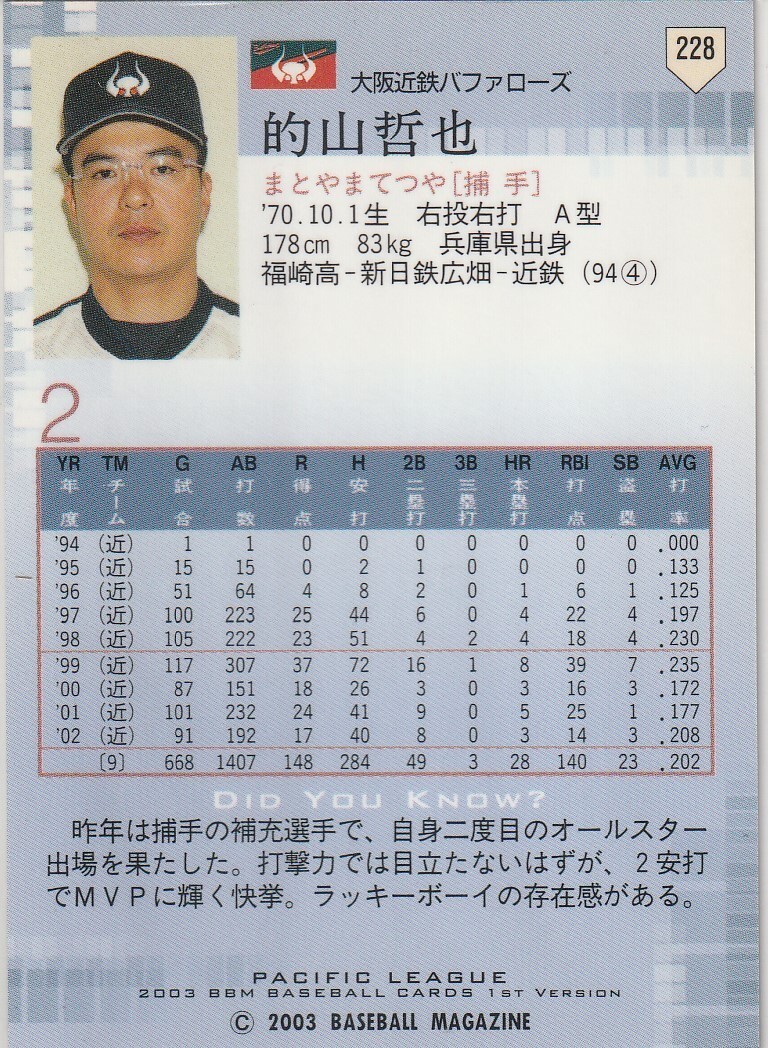 228
大阪近鉄バファローズ
的山哲也
まとやまてつや[捕 手]
'70.10.1生 右投右打 A型
178cm 83kg 兵庫県出身
福崎高-新日鉄広畑-近鉄 (94④)
2
YR TM G AB R H 2B 3B HR RBI SB AVG
年度 チーム 試合 打数 得点 安打 二塁打 三塁打 本塁打 打点 盗塁 打率
'94 (近) 1 1 0 0 0 0 0 0 0 .000
'95 (近) 15 15 0 2 1 0 0 0 0 .133
'96 (近) 51 64 4 8 2 0 1 6 1 .125
'97 (近) 100 223 25 44 6 0 4 22 4 .197
'98 (近) 105 222 23 51 4 2 4 18 4 .230
'99 (近) 117 307 37 72 16 1 8 39 7 .235
'00 (近) 87 151 18 26 3 0 3 16 3 .172
'01 (近) 101 232 24 41 9 0 5 25 1 .177
'02 (近) 91 192 17 40 8 0 3 14 3 .208
[9] 668 1407 148 284 49 3 28 140 23 .202
DID YOU KNOW?
昨年は捕手の補充選手で、自身二度目のオールスター
出場を果たした。打撃力では目立たないはずが、2安打
でMVPに輝く快挙。ラッキーボーイの存在感がある。
PACIFIC LEAGUE
2003 BBM BASEBALL CARDS 1ST VERSION
© 2003 BASEBALL MAGAZINE